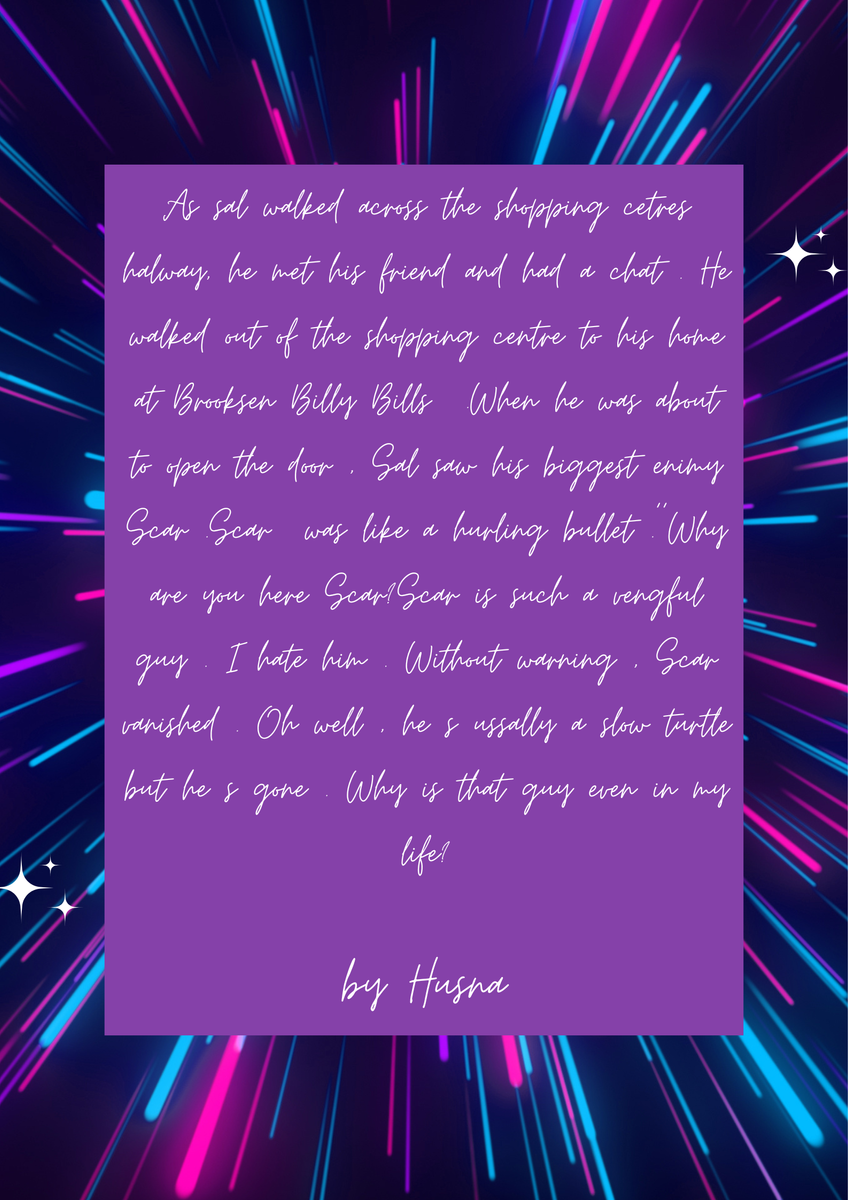 As sal walked across the shopping cetres
halway, he met his friend and had a chat . He
walked out of the shopping centre to his home
at Brooksen Billy Bills .When he was about
to open the door , Sal saw his biggest enimy
Scar .Scar was like a hurling bullet ."Why
are you here Scar?Scar is such a vengful
guy . I hate him . Without warning , Scar
vanished . Oh well , he s ussally a slow turtle
but he s gone . Why is that guy even in my
life?
by Husna